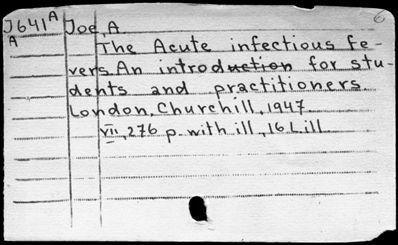 J641A Joe, A.
A
The Acute infectious fe-
vers. An introduction for stu-
dents and practitioners.
London, Churchill, 1947.
vii, 276 p. with ill., 16 L. ill.
6